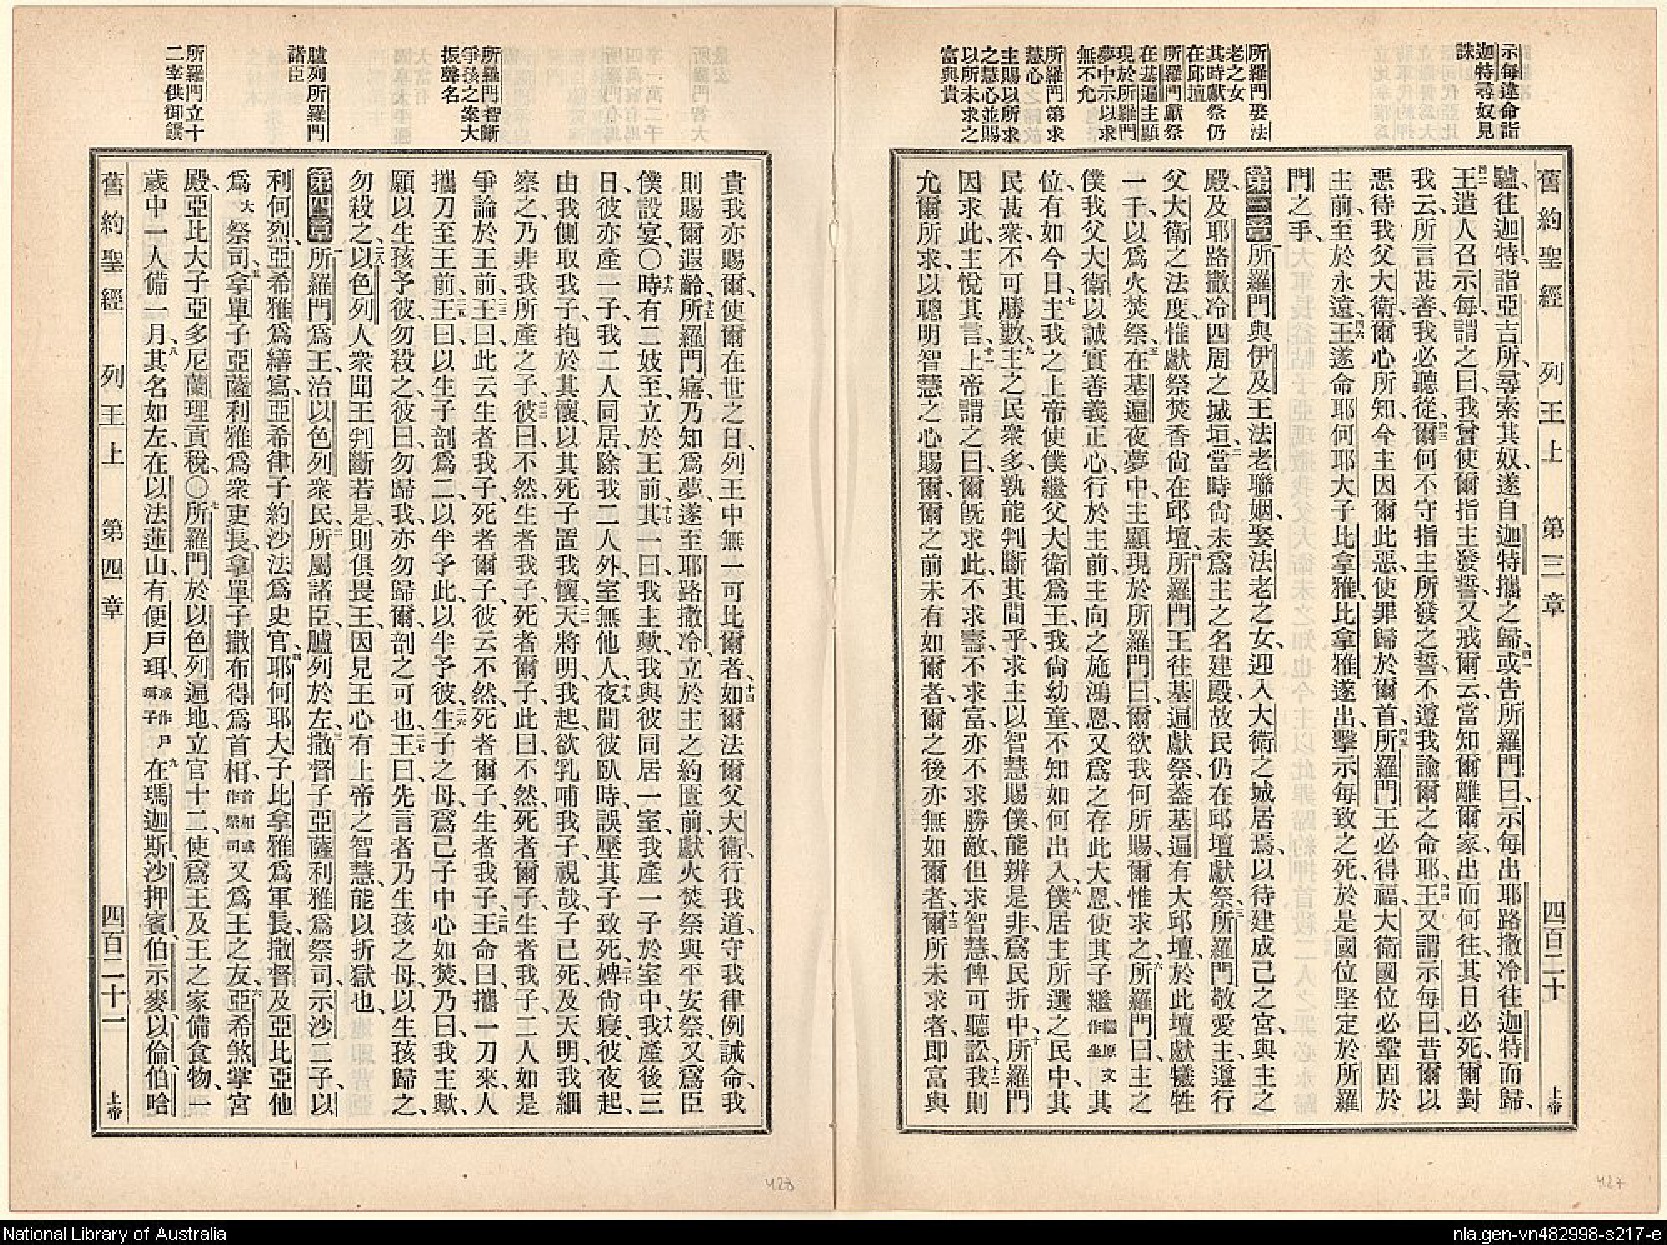 示每違命詣
迦特尋奴見
誅
所羅門娶法
老之女
其時獻祭仍
在邱壇
所羅門獻祭
在基遍主顯
現於所羅門
夢中示以求
無不允
所羅門第求
慧心
主賜以所求
之慧心並賜
以所未求之
富與貴
舊約聖經 列王上 第三章 四百二十 上帝
驢往迦特、詣亞吉所、尋索其奴、遂自迦特攜之歸、四一或告所羅門曰、示每出耶路撒冷往迦特而歸、
四二王遣人召示每、謂之曰、我曾使爾指主發誓、又戒爾云、當知爾離爾家出而何往、其日必死、爾對
我云、所言甚善、我必聽從、四三爾何不守指主所發之誓、不遵我諭爾之命耶、四四王又謂示每曰、昔爾以
惡待我父大衛、爾心所知、今主因爾此惡、使罪歸於爾首、四五所羅門王必得福、大衛國位必鞏固於
主前、至於永遠、四六王遂命耶何耶大子比拿雅、比拿雅遂出、擊示每致之死、於是國位堅定於所羅
門之手、
第三章 一所羅門與伊及王法老聯姻、娶法老之女、迎入大衛之城居焉、以待建成己之宮、與主之
殿、及耶路撒冷四周之城垣、二當時尚未爲主之名建殿、故民仍在邱壇獻祭、三所羅門敬愛主、遵行
父大衛之法度、惟獻祭焚香、尚在邱壇、四所羅門王往基遍獻祭、蓋基遍有大邱壇、於此壇獻犧牲
一千、以爲火焚祭、五在基遍夜夢中、主顯現於所羅門曰、爾欲我何所賜爾、惟求之、六所羅門曰、主之
僕我父大衛、以誠實善義正心、行於主前、主向之施鴻恩、又爲之存此大恩、使其子繼繼原文作坐其
位、有如今日、七主我之上帝、使僕繼父大衛爲王、我尚幼童、不知如何出入、八僕居主所選之民中、其
民甚衆、不可勝數、九主之民衆多、孰能判斷其間乎、求主以智慧賜僕、能辨是非、爲民折中、十所羅門
因求此、主悅其言、十一上帝謂之曰、爾旣求此、不求壽、不求富、亦不求勝敵、但求智慧、俾可聽訟、十二我則
允爾所求、以聰明智慧之心賜爾、爾之前未有如爾者、爾之後亦無如爾者、十三爾所未求者、卽富與
所羅門智斷
爭孩之案大
振聲名
臚列所羅門
諸臣
所羅門立十
二宰供御饌
貴、我亦賜爾、使爾在世之日、列王中無一可比爾者、十四如爾法爾父大衛、行我道、守我律例誡命、我
則賜爾遐齡、十五所羅門寤、乃知爲夢、遂至耶路撒冷、立於主之約匱前、獻火焚祭與平安祭、又爲臣
僕設宴、〇十六時有二妓至、立於王前、十七其一曰、我主歟、我與彼同居一室、我產一子於室中、十八我產後三
日、彼亦產一子、我二人同居、除我二人外、室無他人、十九夜間彼臥時、誤壓其子致死、二十婢尚寢、彼夜起、
由我側取我子、抱於其懷、以其死子置我懷、二一天將明、我起、欲乳哺我子、視哉、子已死、及天明、我細
察之、乃非我所產之子、二二彼曰、不然、生者我子、死者爾子、此曰、不然、死者爾子、生者我子、二人如是
爭論於王前、二三王曰、此云生者我子、死者爾子、彼云不然、死者爾子、生者我子、二四王命曰、攜一刀來、人
攜刀至王前、二五王曰、以生子剖爲二、以半予此、以半予彼、二六生子之母、爲己子中心如焚、乃曰、我主歟、
願以生孩予彼、勿殺之、彼曰、勿歸我、亦勿歸爾、剖之可也、二七王曰、先言者乃生孩之母、以生孩歸之、
勿殺之、二八以色列人衆聞王判斷若是、則俱畏王、因見王心有上帝之智慧、能以折獄也、
第四章 一所羅門爲王、治以色列衆民、二所屬諸臣、臚列於左、撒督子亞薩利雅爲祭司、三示沙二子、以
利何烈、亞希雅爲繕寫、亞希律子約沙法爲史官、四耶何耶大子比拿雅爲軍長、撒督及亞比亞他
爲大祭司、五拿單子亞薩利雅爲衆吏長、拿單子撒布得爲首相、首相或作祭司又爲王之友、六亞希煞掌宮
殿、亞比大子亞多尼蘭理貢稅、〇七所羅門於以色列遍地、立官十二、使爲王及王之家備食物、一
歲中一人備一月、八其名如左、在以法蓮山、有便戶珥、或作戶珥子九在瑪迦斯、沙押賓、伯示麥、以倫伯哈
舊約聖經 列王上 第四章 四百二十一 上帝
428
427
National Library of Australia
nla.gen-vn482998-s217-e